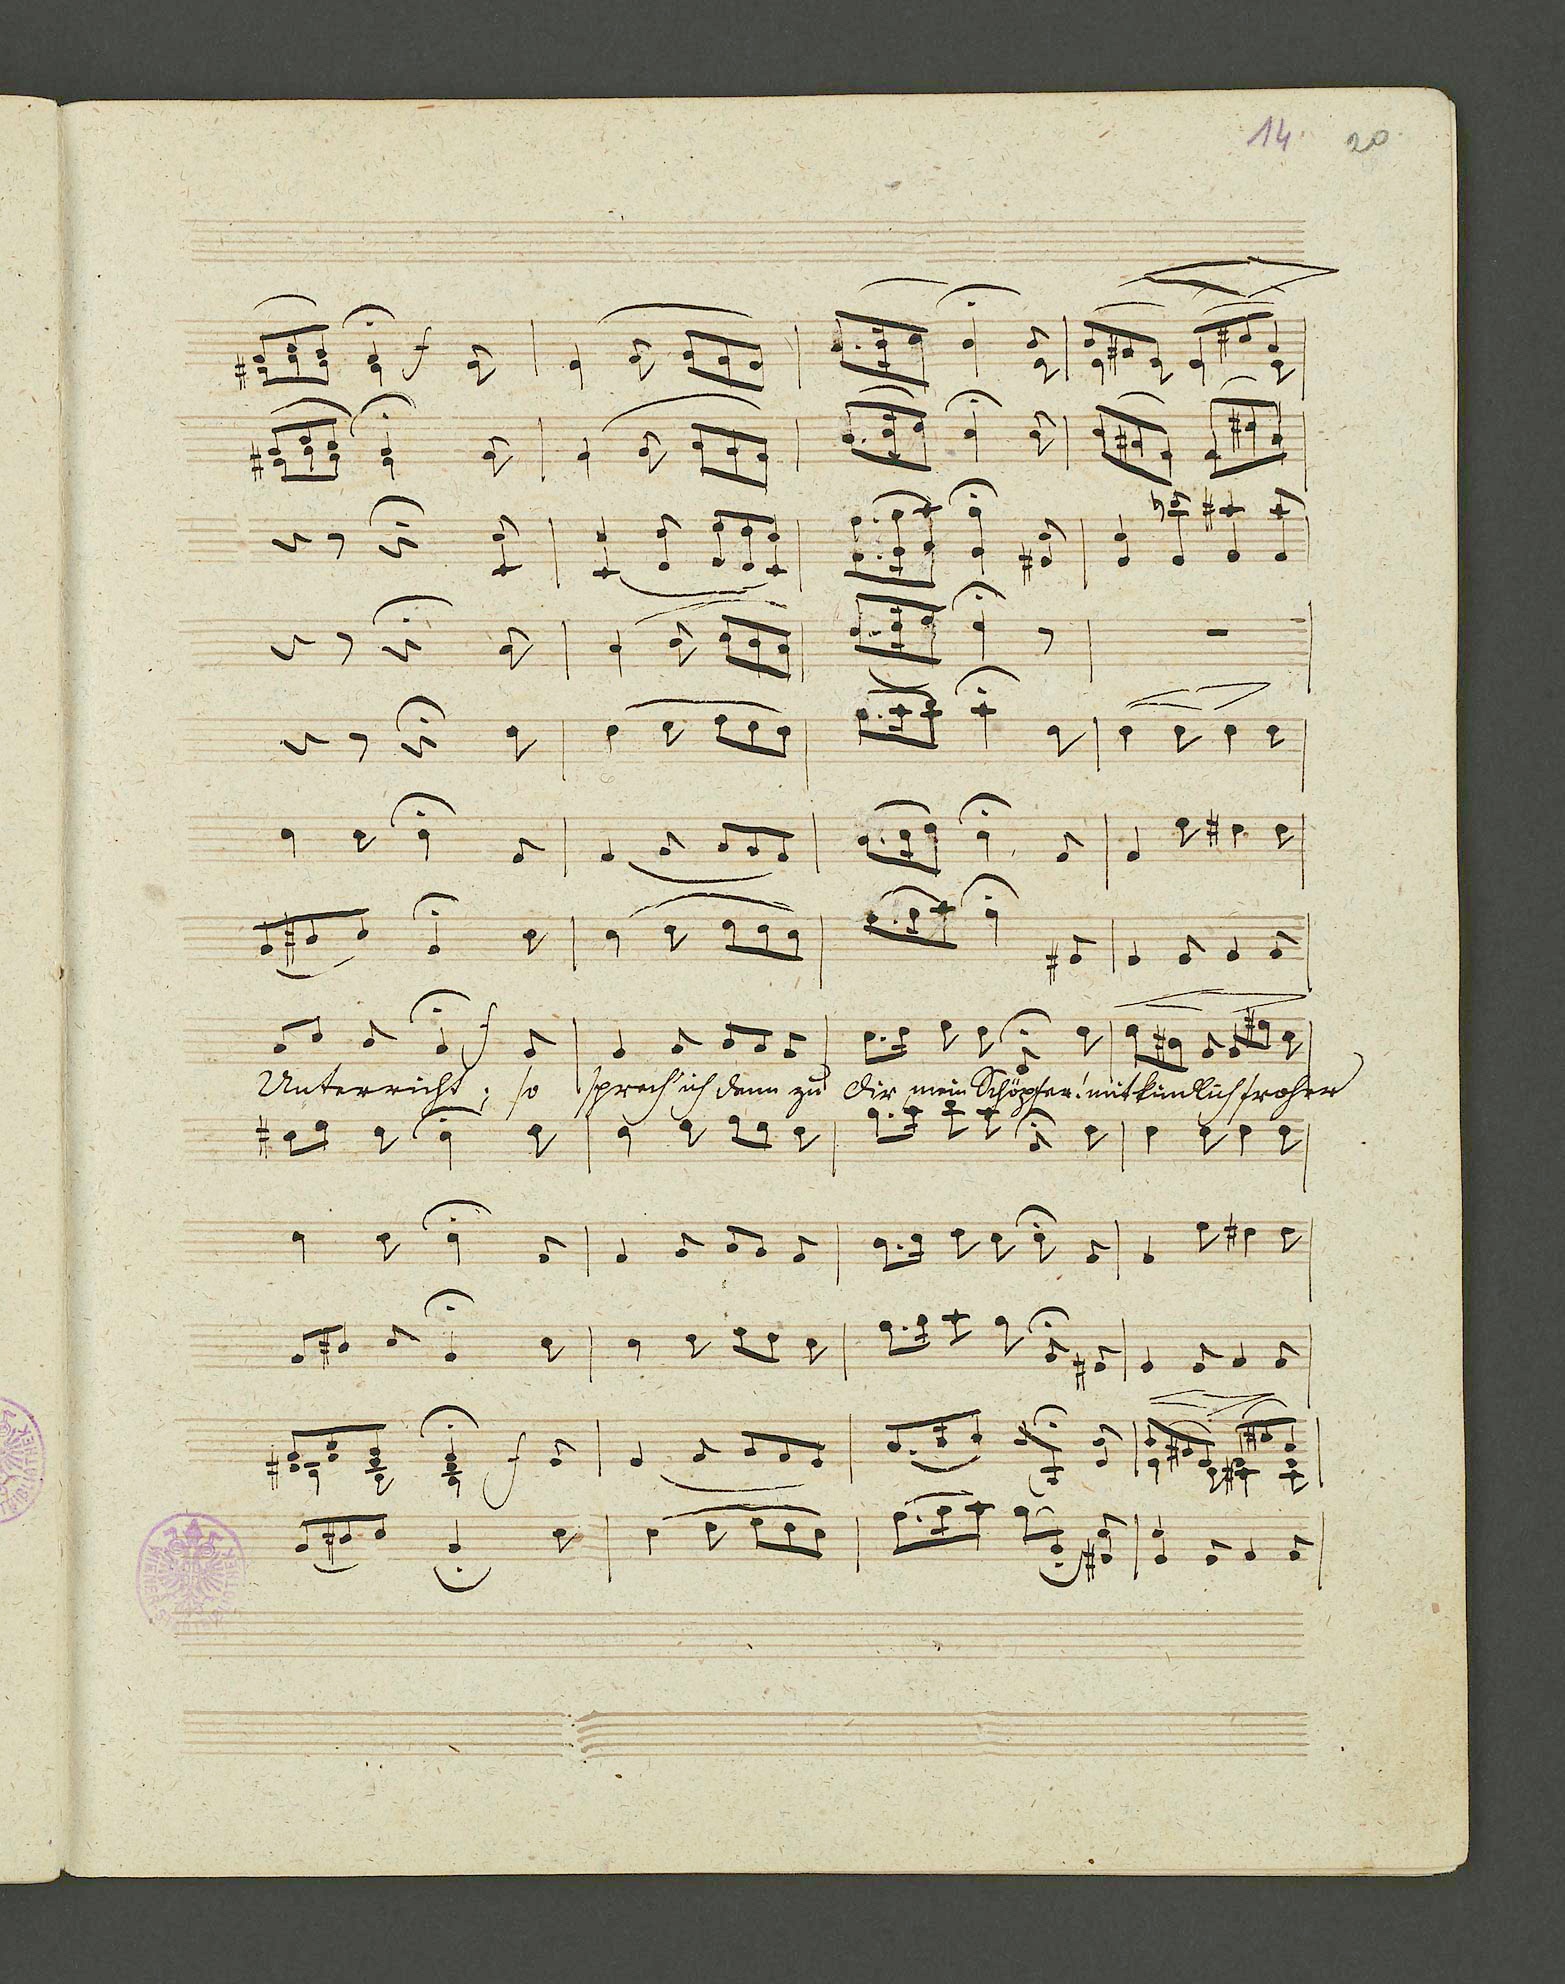 14. 20.
f
f
Unterricht; so sprech' ich denn zu dir mein Schöpfer! mit kindlich froher
f